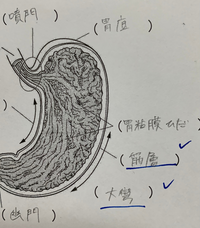 (噴門
(胃底
)
(胃粘膜ヒダ)
(筋層)
(大弯)
(幽門